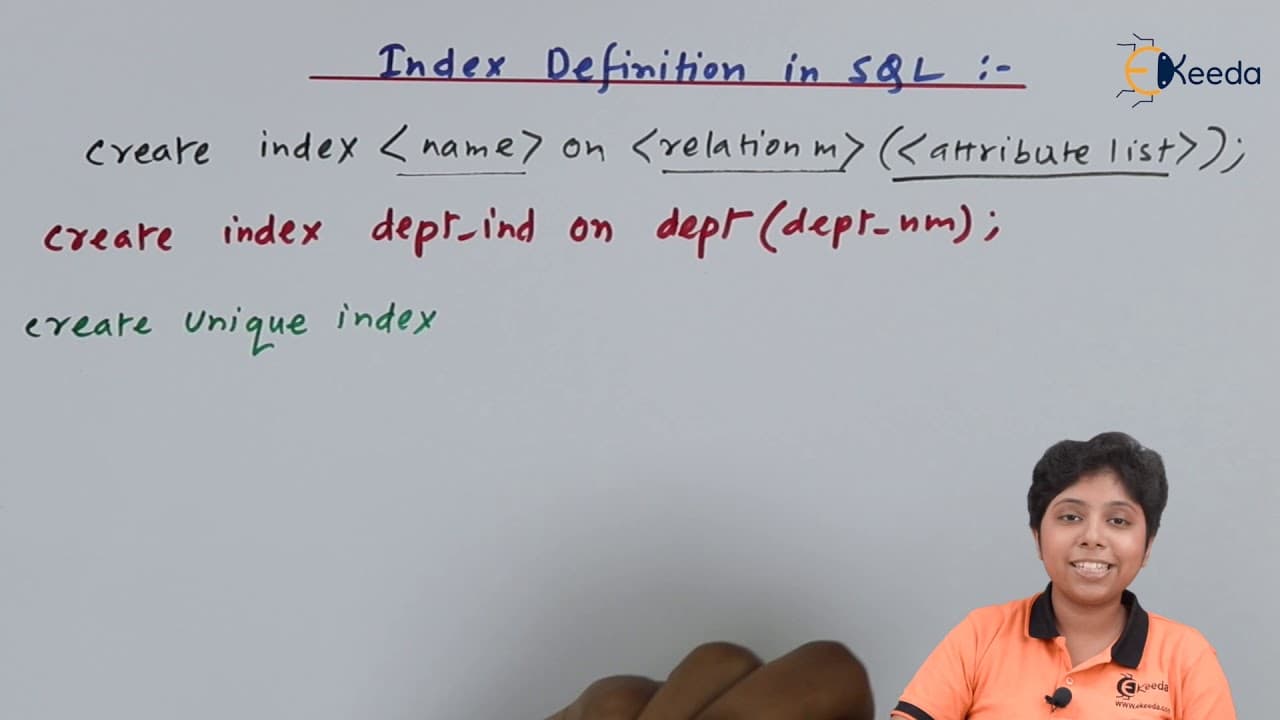 Index Definition in SQL :-
EKeeda
create index <name> on <relation m> (<attribute list>);
create index dept_ind on dept (dept_nm);
create unique index
EKeeda
www.ekeeda.com